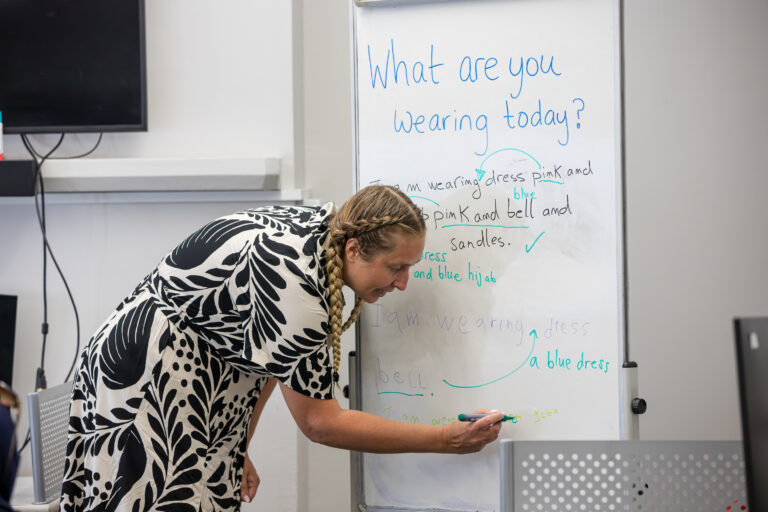 What are you
wearing today?
I am wearing dress pink and
blue
pink and bell and
sandles.
dress
and blue hijab
I am wearing dress
a blue dress
bell.
I am